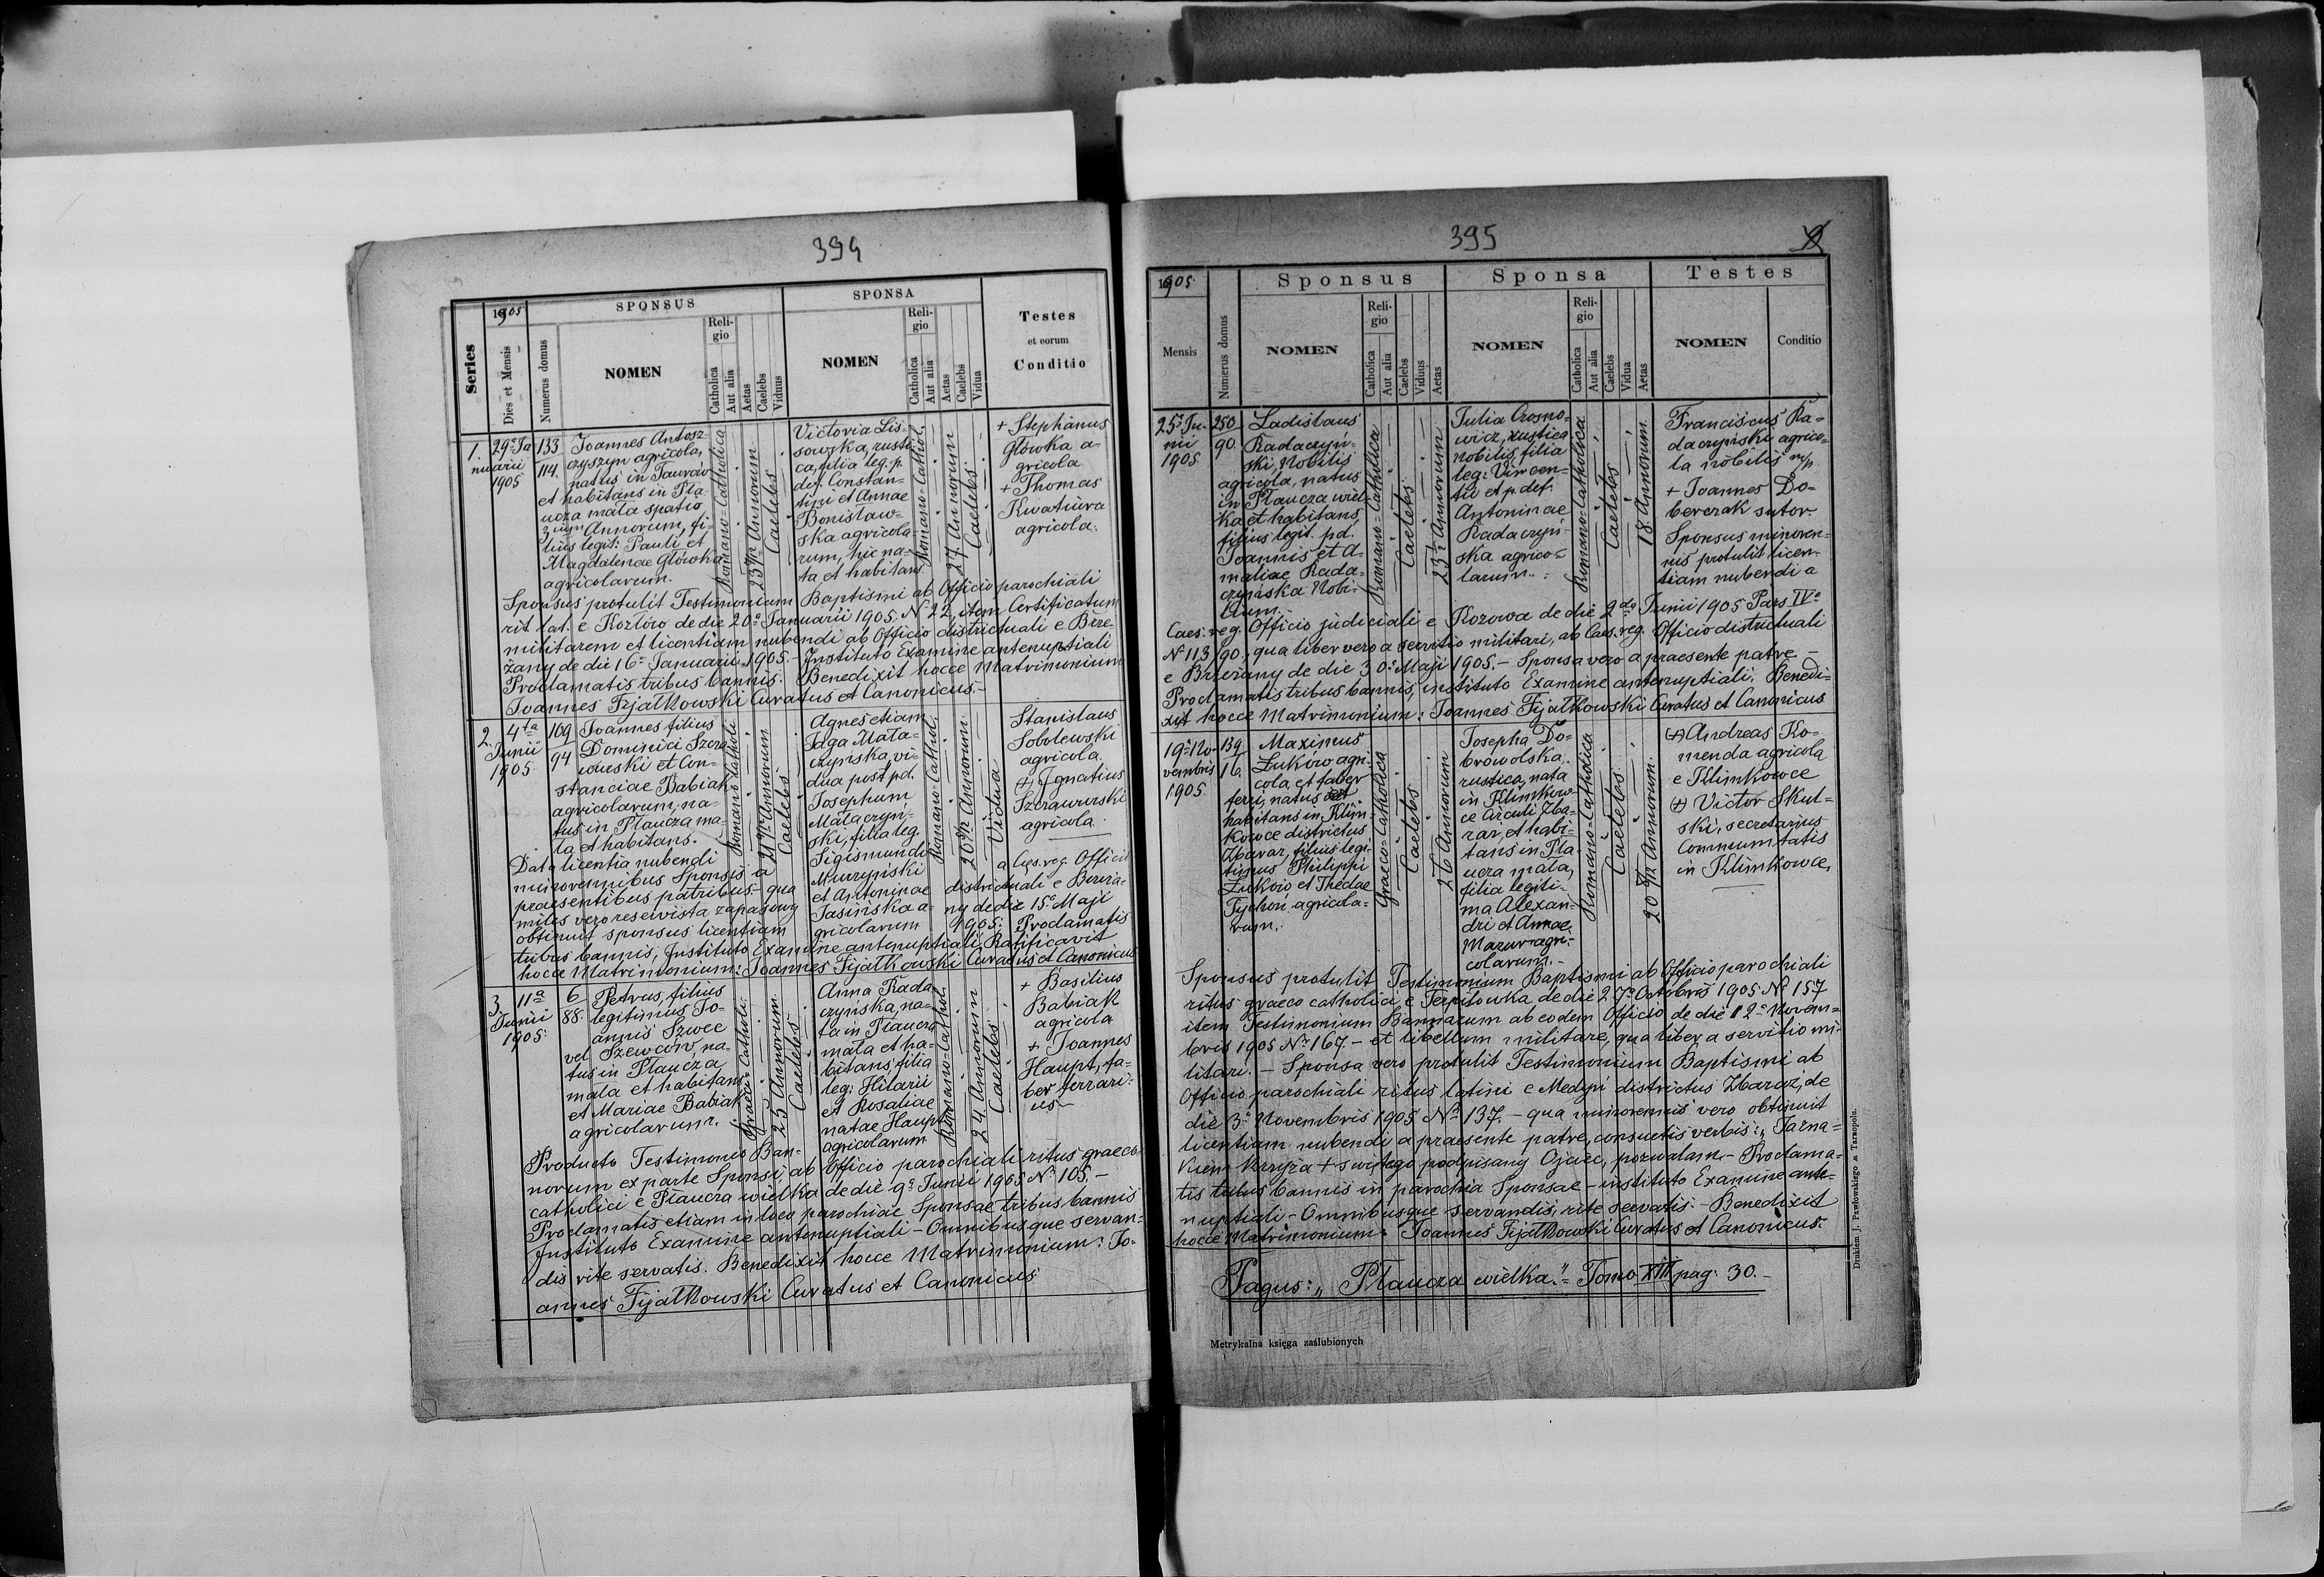 394
Series
1905
Dies et Mensis
Numerus domus
SPONSUS
NOMEN
Reli-
gio
Catholica
Aut alia
Aetas
Caelebs
Viduus
SPONSA
NOMEN
Reli-
gio
Catholica
Aut alia
Aetas
Caelebs
Vidua
Testes
et eorum
Conditio
1.
29a Ja
nuarii
1905
133
114.
Joannes Antosz-
czyszyn agricola,
natus in Taurów
et habitans in Pła-
ucza mała spatio
3um Annorum, fi-
lius legit: Pauli et
Magdalenae Główka
agricolarum.
Romano-Catholica
23 Annorum
Caelebs
Victoria Lis-
sowska, rusti-
ca, filia leg. p.
def. Constan-
tini et Annae
Bonisław-
ska agricola-
rum, hic na-
ta et habitans
Romano-Cathol.
27 Annorum
Caelebs
+ Stephanus
Główka a-
gricola
+ Thomas
Kwatiura
agricola.
Sponsus protulit Testimonium Baptismi ab Officio parochiali
rit. lat. e Kozłów de die 20a Januarii 1905 No 22, item Certificatum
militarem et licentiam nubendi ab Officio districtuali e Brze-
żany de die 16a Januarii 1905. - Instituto Examine antenuptiali
Proclamatis tribus bannis. Benedixit hocce Matrimonium
Joannes Fijałkowski Curatus et Canonicus.-
2.
4ta
Junii
1905
109
94
Joannes filius
Dominici Szcza-
wurski et Con-
stanciae Babiak
agricolarum, na-
tus in Płaucza ma-
ła et habitans.
Romano Catholi.
21 Annorum
Caelebs
Agnes etiam
Jaga Mała-
czynska, vi-
dua post pd.
Josephum
Małaczyń-
ski, filia leg.
Sigismundi
Murzyński
et Antoninae
Jasińska a-
gricolarum
Romano-Cathol.
20 Annorum
Vidua
Stanislaus
Sobolewski
agricola
(+) Ignatius
Szczawurski
agricola.
Data licentia nubendi
minorennibus Sponsis a
praesentibus patribus - qua
miles vero reservista zapasowy
obtinuit sponsus licentiam
a Caes. reg. Officio
districtuali e Brzeża-
ny de die 15a Maji
1905: Proclamatis
tribus bannis, Instituto Examine antenuptiali, Ratificavit
hocce Matrimonium: Joannes Fijałkowski Curatus et Canonicus
3.
11a
Junii
1905.
6
88.
Petrus, filius
legitimus Jo-
annis Szwec
vel Szewców, na-
tus in Płaucza
mała et habitans
et Mariae Babiak
agricolarum.
Graeco-Catholi.
25 Annorum
Caelebs
Anna Rada-
czyńska, na-
ta in Płaucza
mała et ha-
bitans, filia
leg: Hilarii
et Rosaliae
natae Haupt
agricolarum
Romano-Cathol.
24 Annorum
Caelebs
+ Basilius
Babiak
agricola
+ Joannes
Haupt, fa-
ber ferrari-
us-
Producto Testimonio Ban-
norum ex parte Sponsi, ab Officio parochiali ritus graeco
catholici e Płaucza wielka de die 9a Junii 1905 No 105. -
Proclamatis etiam in loco parochiae Sponsae tribus bannis
Instituto Examine antenuptiali - Omnibusque servan-
dis rite servatis. Benedixit hocce Matrimonium: Jo-
annes Fijałkowski Curatus et Canonicus
395
1905.
Mensis
Numerus domus
Sponsus
NOMEN
Reli-
gio
Catholica
Aut alia
Caelebs
Viduus
Aetas
Sponsa
NOMEN
Reli-
gio
Catholica
Aut alia
Caelebs
Vidua
Aetas
Testes
NOMEN
Conditio
25a Ju-
nii
1905
250
90.
Ladislaus
Radaczyń-
ski, Nobilis
agricola, natus
in Płaucza wiel-
ka et habitans
filius legit. pd.
Joannis et A-
maliae Rada-
czyńska Nobi-
lium.
Romano-Catholica
Caelebs
23 Annorum
Julia Crosno-
wicz, rustica
nobilis, filia
leg: Vincen-
tii et p. def.
Antoninae
Radaczyń-
ska agrico-
larum.
Romano-Catholica
Caelebs
18 Annorum
Franciscus Ra-
daczyński agrico-
la nobilis mp
+ Joannes Do-
berczak sutor-
Sponsus minoren-
nis protulit licen-
tiam nubendi a
Caes. reg. Officio judiciali e Kozowa de die 2da Junii 1905 Pars IVa
No 113/90, qua liber vero a servitio militari, ab Caes. reg. Officio districtuali
e Brzeżany de die 30a Maji 1905. - Sponsa vero a praesente patre. -
Proclamatis tribus bannis, instituto Examine antenuptiali. Benedi-
xit hocce Matrimonium: Joannes Fijałkowski Curatus et Canonicus
19a No-
vembris
1905.
139
16.
Maximus
Łuków agri-
cola et faber
ferri, natus et
habitans in Klim-
kowce districtus
Zbaraż, filius legi-
timus Philippi
Łuków et Theclae
Tychon agricola-
rum.
Graeco-Catholica
Caelebs
26 Annorum
Josepha Do-
browolska,
rustica, nata
in Klimkow-
ce Circuli Zba-
raż, et habi-
tans in Pła-
ucza mała,
filia legiti-
ma Alexan-
dri et Annae
Mazur agri-
colarum. -
Romano-Catholica
Caelebs
20 Annorum.
(+) Andreas Ko-
menda agricola
e Klimkowce
(+) Victor Skul-
ski, secretarius
Communitatis
in Klimkowce,
Sponsus protulit Testimonium Baptismi ab Officio parochiali
ritus graeco catholici, e Terpiłówka de die 27a Octobris 1905 No 157
item Testimonium Bannorum ab eodem Officio de die 12a Novem-
bris 1905 No 167. - et libellum militare, qua liber a servitio mi-
litari. - Sponsa vero protulit Testimonium Baptismi ab
Officio parochiali ritus latini e Medyń districtus Zbaraż, de
die 3a Novembris 1905 No 137. - qua minorennis vero obtinuit
licentiam nubendi a praesente patre, consuetis verbis: „Jazna-
kiem krzyża + swiętego podpisany Ojciec, pozwalam. - Proclama-
tis tribus bannis in parochia Sponsae - instituto Examine ante-
nuptiali - Omnibusque servandis, rite servatis - Benedixit
hocce Matrimonium: Joannes Fijałkowski Curatus et Canonicus.
Pagus: „Płaucza wielka." = Tomo XIII pag: 30. -
Metrykalna księga zaślubionych
Drukiem J. Pawłowskiego w Tarnopolu.